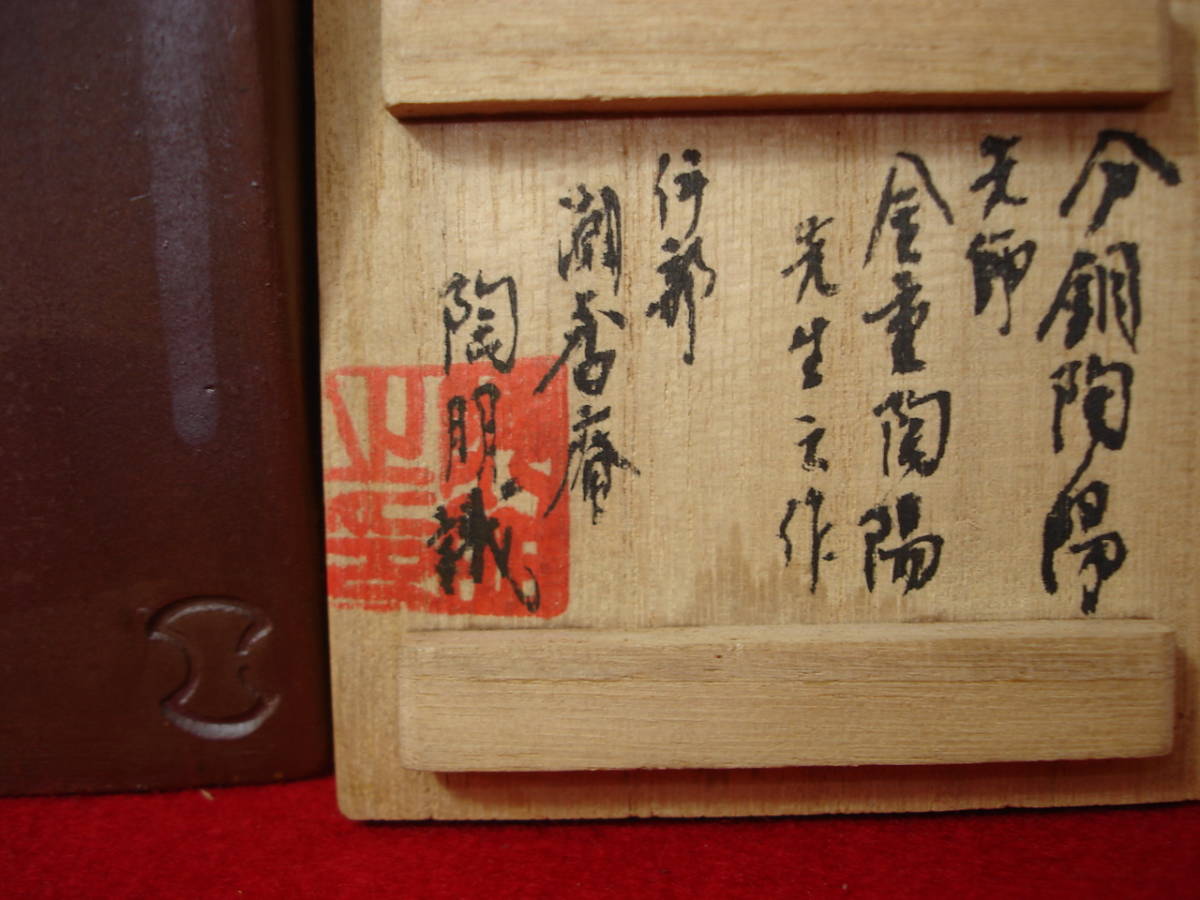 分銅陶陽
先師
金重陶陽
先生之作
伊部
陶朋識